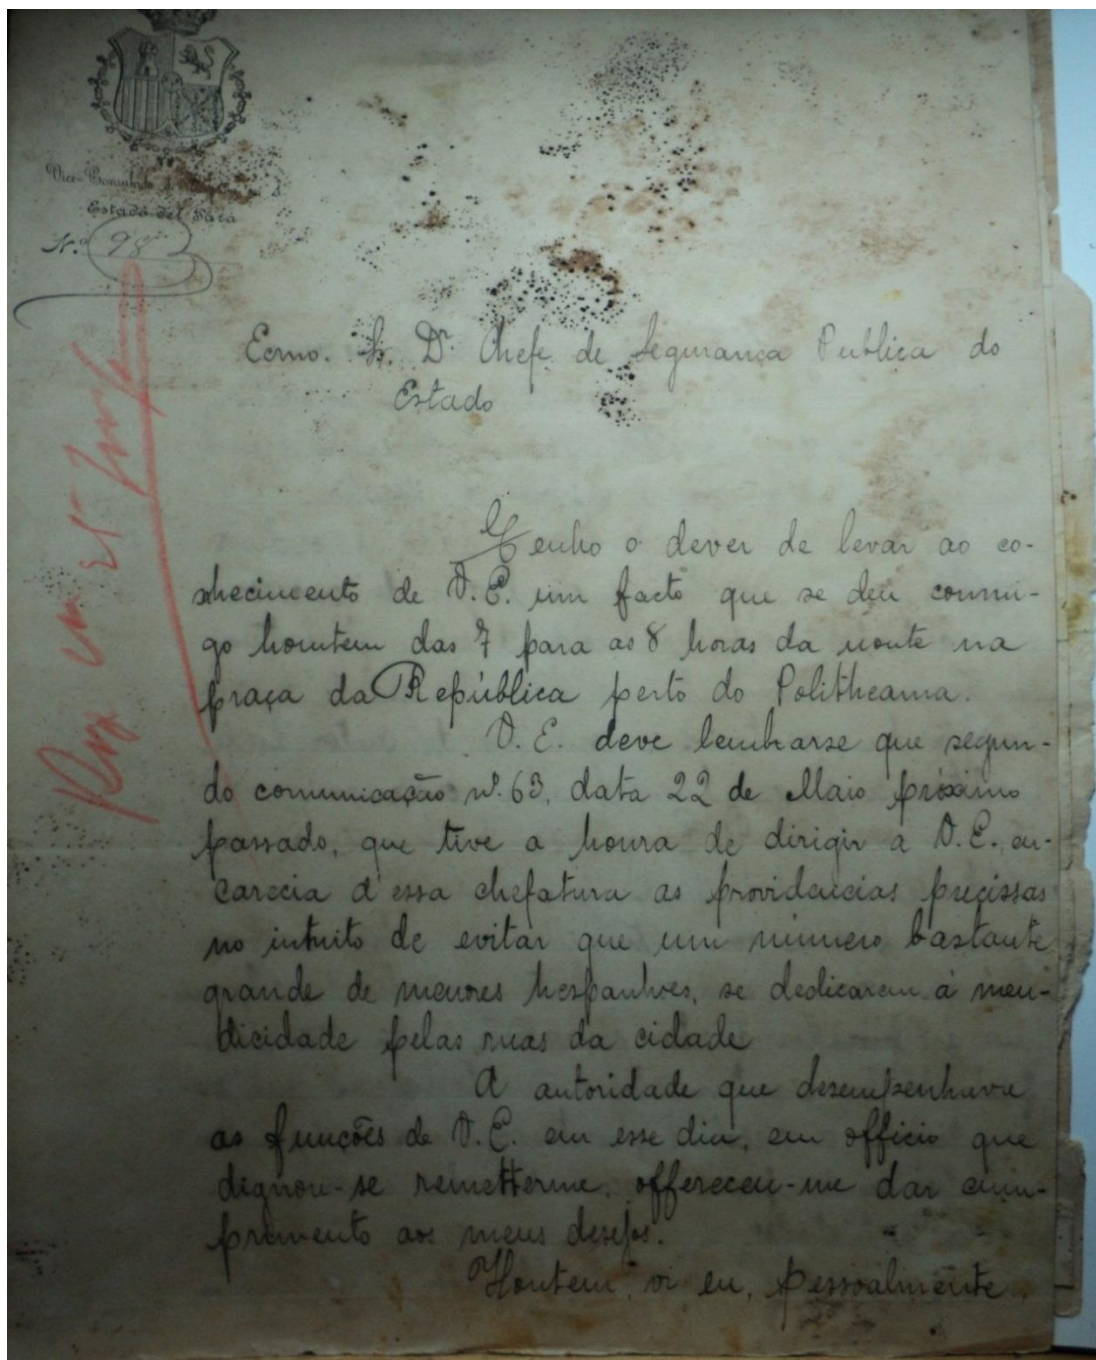 Vice-Consulado
Estado del Pará
N.º 98
Ecmo. Sr. Dr. Chefe de Segurança Publica do
Estado
Tenho o dever de levar ao co-
nhecimento de V. E. um facto que se deu commi-
go hontem das 7 para as 8 horas da noute na
praça da República perto do Politheama.
V. E. deve lembrarse que segun-
do comunicação nº. 63, data 22 de Maio próximo
passado, que tive a honra de dirigir a V. E., en-
carecia d'essa chefatura as providencias precissas
no intuito de evitar que um número bastante
grande de menores hespanhoes, se dedicarem á men-
dicidade pelas ruas da cidade
A autoridade que desempenhava
as funções de V. E. em esse dia, em officio que
dignou-se remetterme, offereceu-me dar cum-
primento aos meus desejos.
Hontem, vi eu, pessoalmente